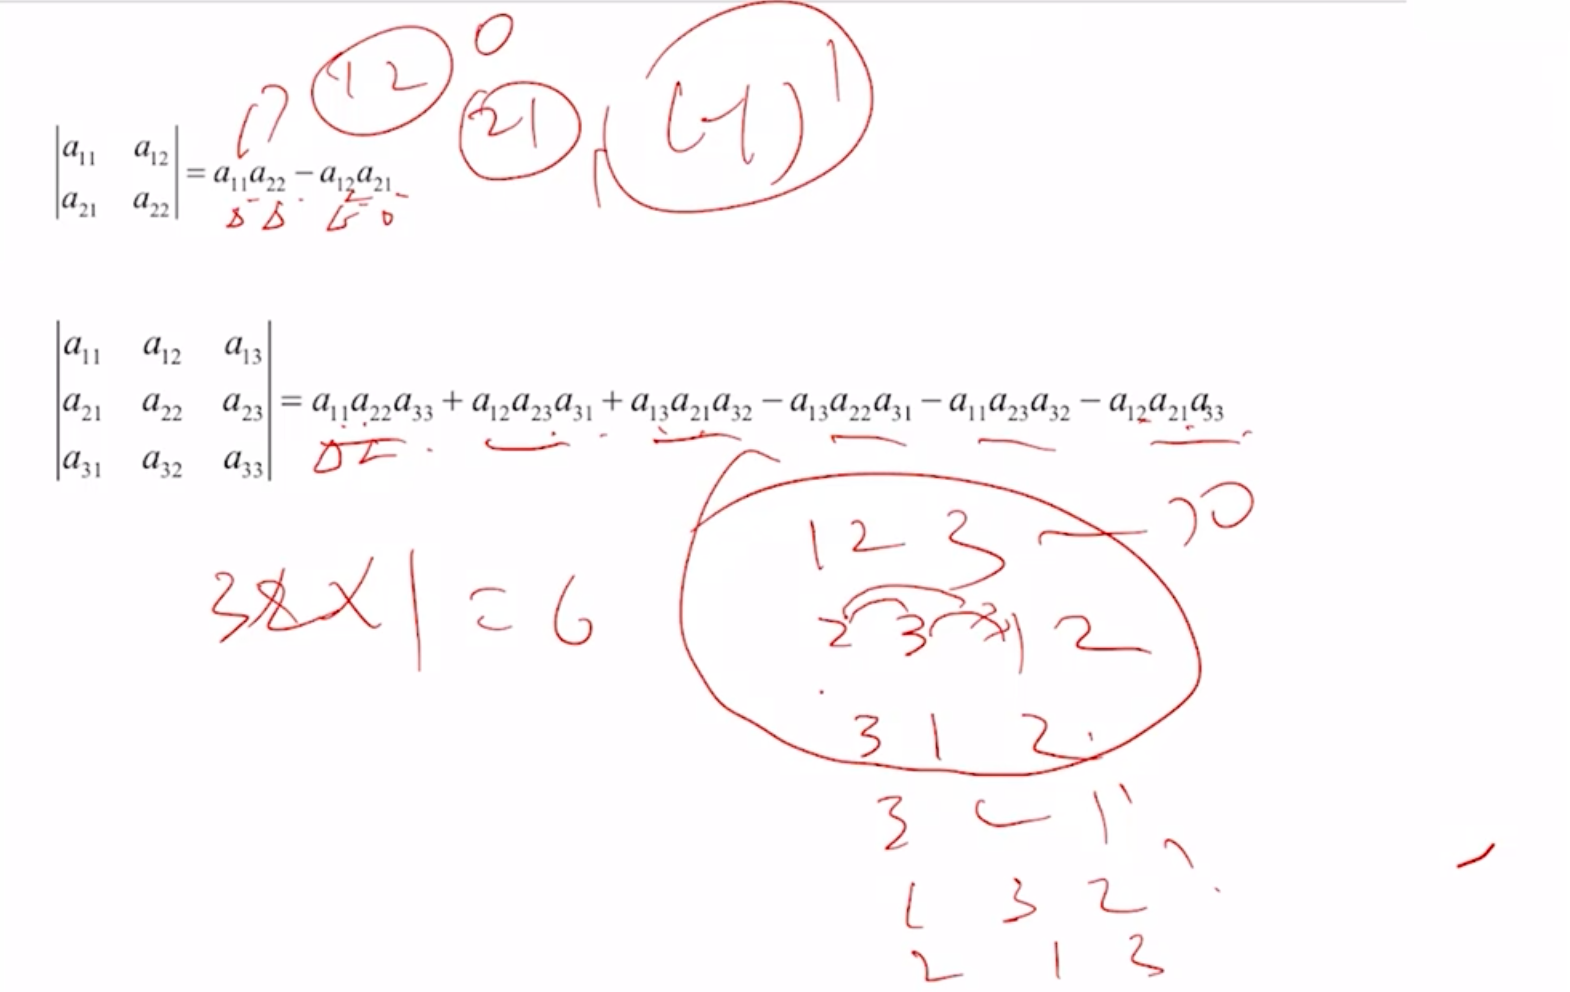 1 2 0
21 (-1)^1
|a₁₁ a₁₂|
|a₂₁ a₂₂| = a₁₁a₂₂ − a₁₂a₂₁
|a₁₁ a₁₂ a₁₃|
|a₂₁ a₂₂ a₂₃| = a₁₁a₂₂a₃₃ + a₁₂a₂₃a₃₁ + a₁₃a₂₁a₃₂ − a₁₃a₂₂a₃₁ − a₁₁a₂₃a₃₂ − a₁₂a₂₁a₃₃
|a₃₁ a₃₂ a₃₃|
1 2 3 0
3 2 × 1 = 6
2 3 1 2
3 1 2
3 2 1
1 3 2
2 1 3